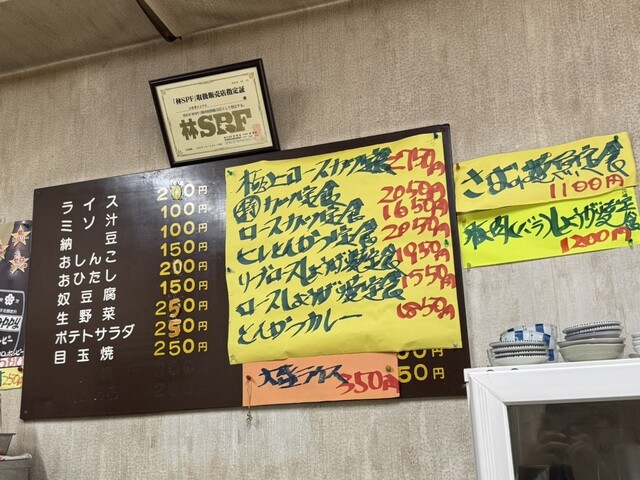 「林SPF」取扱販売店指定証
林SPF
ライス 200円
ミソ汁 100円
納豆 100円
おしんこ 150円
おひたし 200円
奴豆腐 150円
生野菜 250円
ポテトサラダ 250円
目玉焼 250円
極上ロースカツ定食 2750円
カツ定食 2050円
ロースカツ定食 1650円
ヒレとんかつ定食 2050円
リブロースしょうが定食 1950円
ロースしょうが定食 1550円
とんかつカレー 1850円
大盛ライス 350円
50円
50円
さばの煮魚定食 1100円
豚肉(バラ)しょうが定食 1200円